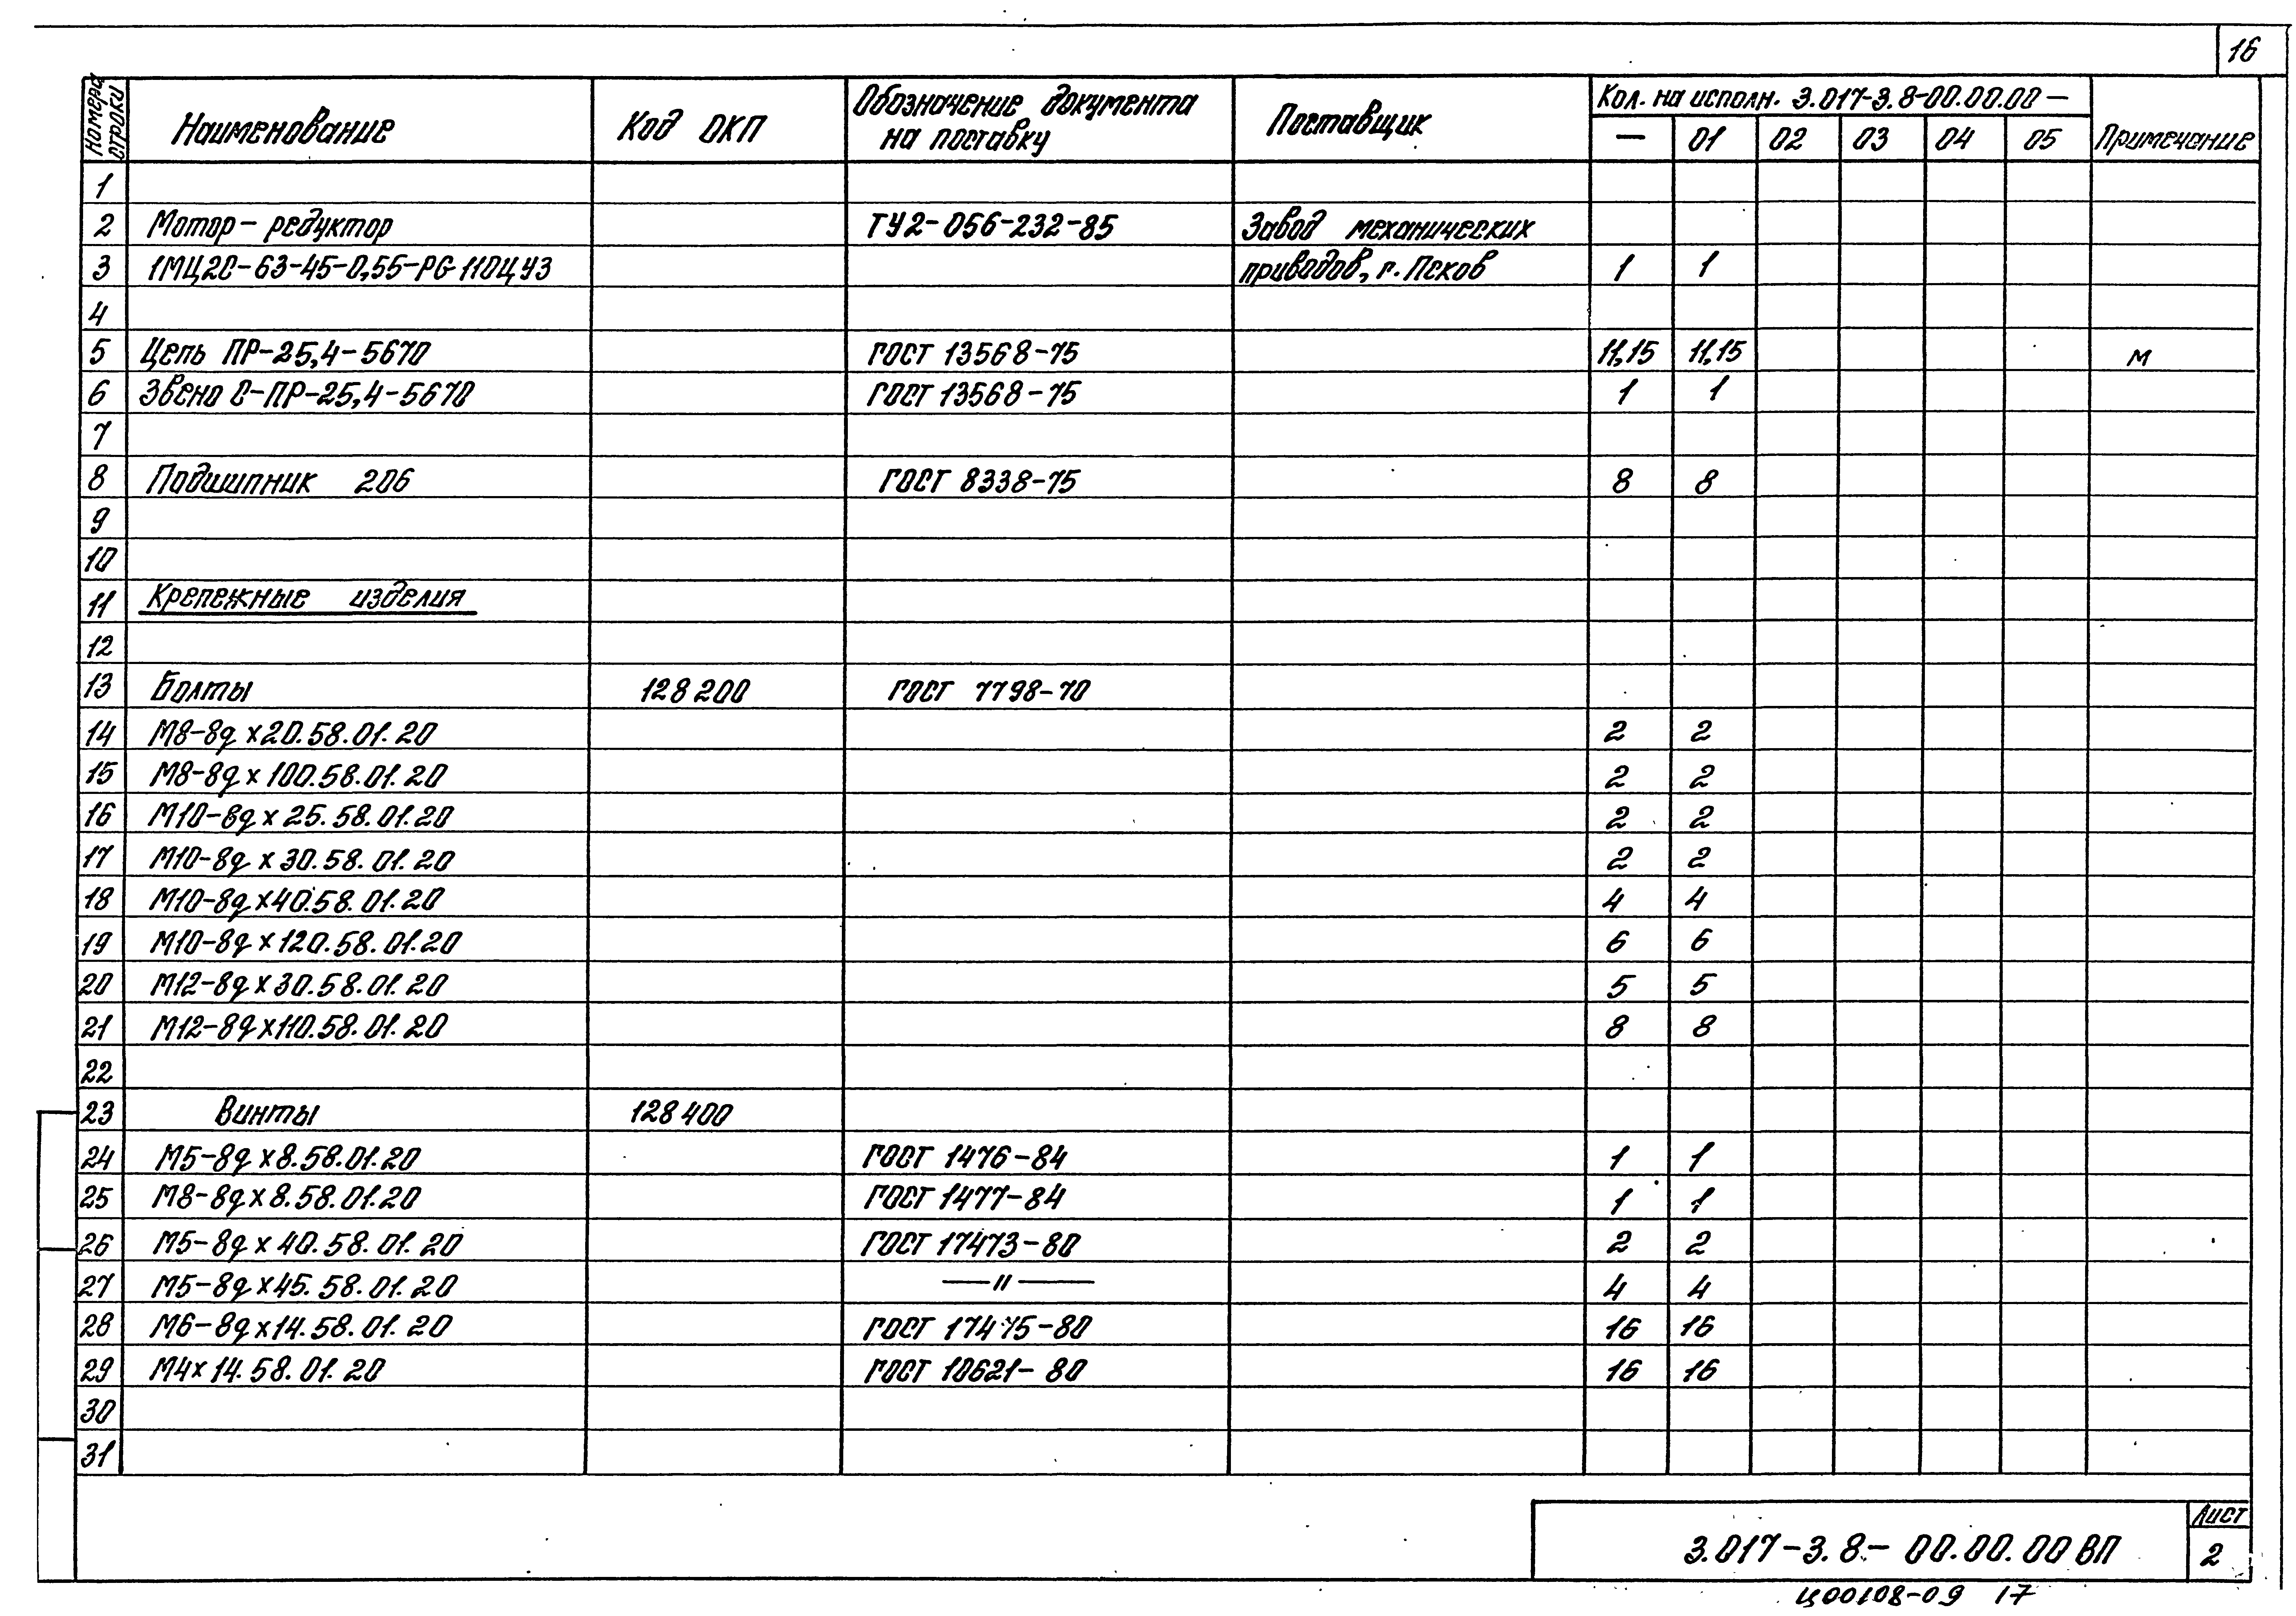 16
Номера строки Наименование Код ОКП Обозначение документа на поставку Поставщик Кол. на исполн. 3.017-3.8-00.00.00 — Примечание
— 01 02 03 04 05
1
2 Мотор-редуктор ТУ2-056-232-85 Завод механических
3 1МЦ2С-63-45-0,55-РG110ЦУ3 приводов, г. Псков 1 1
4
5 Цепь ПР-25,4-5670 ГОСТ 13568-75 11,15 11,15 м
6 Звено С-ПР-25,4-5670 ГОСТ 13568-75 1 1
7
8 Подшипник 206 ГОСТ 8338-75 8 8
9
10
11 Крепежные изделия
12
13 Болты 128200 ГОСТ 7798-70
14 М8-8g х20.58.01.20 2 2
15 М8-8g х 100.58.01.20 2 2
16 М10-8g х 25.58.01.20 2 2
17 М10-8g х 30.58.01.20 2 2
18 М10-8g х40.58.01.20 4 4
19 М10-8g х 120.58.01.20 6 6
20 М12-8g х 30.58.01.20 5 5
21 М12-8g х110.58.01.20 8 8
22
23 Винты 128400
24 М5-8g х8.58.01.20 ГОСТ 1476-84 1 1
25 М8-8g х 8.58.01.20 ГОСТ 1477-84 1 1
26 М5-8g х 40.58.01.20 ГОСТ 17473-80 2 2
27 М5-8g х45.58.01.20 —"— 4 4
28 М6-8g х14.58.01.20 ГОСТ 17475-80 16 16
29 М4х 14.58.01.20 ГОСТ 10621-80 16 16
30
31
3.017-3.8-00.00.00 ВП
Лист
2
Ц00108-09 17